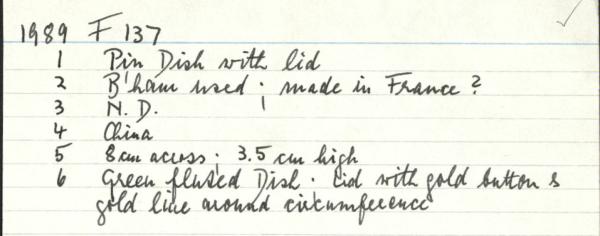 1989 F 137
1 Pin Dish with lid
2 B'ham used; made in France?
3 N.D.
4 China
5 8cm across; 3.5 cm high
6 Green fluted Dish. Lid with gold button &
gold line around circumference